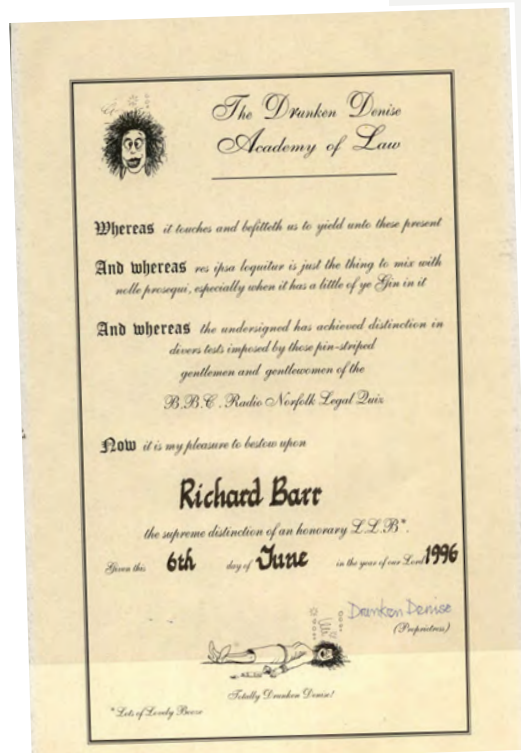 The Drunken Denise
Academy of Law
Whereas it touches and befitteth us to yield unto these present
And whereas res ipsa loquitur is just the thing to mix with
nolle prosequi, especially when it has a little of ye Gin in it
And whereas the undersigned has achieved distinction in
divers tests imposed by those pin-striped
gentlemen and gentlewomen of the
B.B.C. Radio Norfolk Legal Quiz
Now it is my pleasure to bestow upon
Richard Barr
the supreme distinction of an honorary L.L.B*.
Given this 6th day of June in the year of our Lord 1996
Drunken Denise
(Proprietress)
Totally Drunken Denise!
*Lots of Lovely Booze